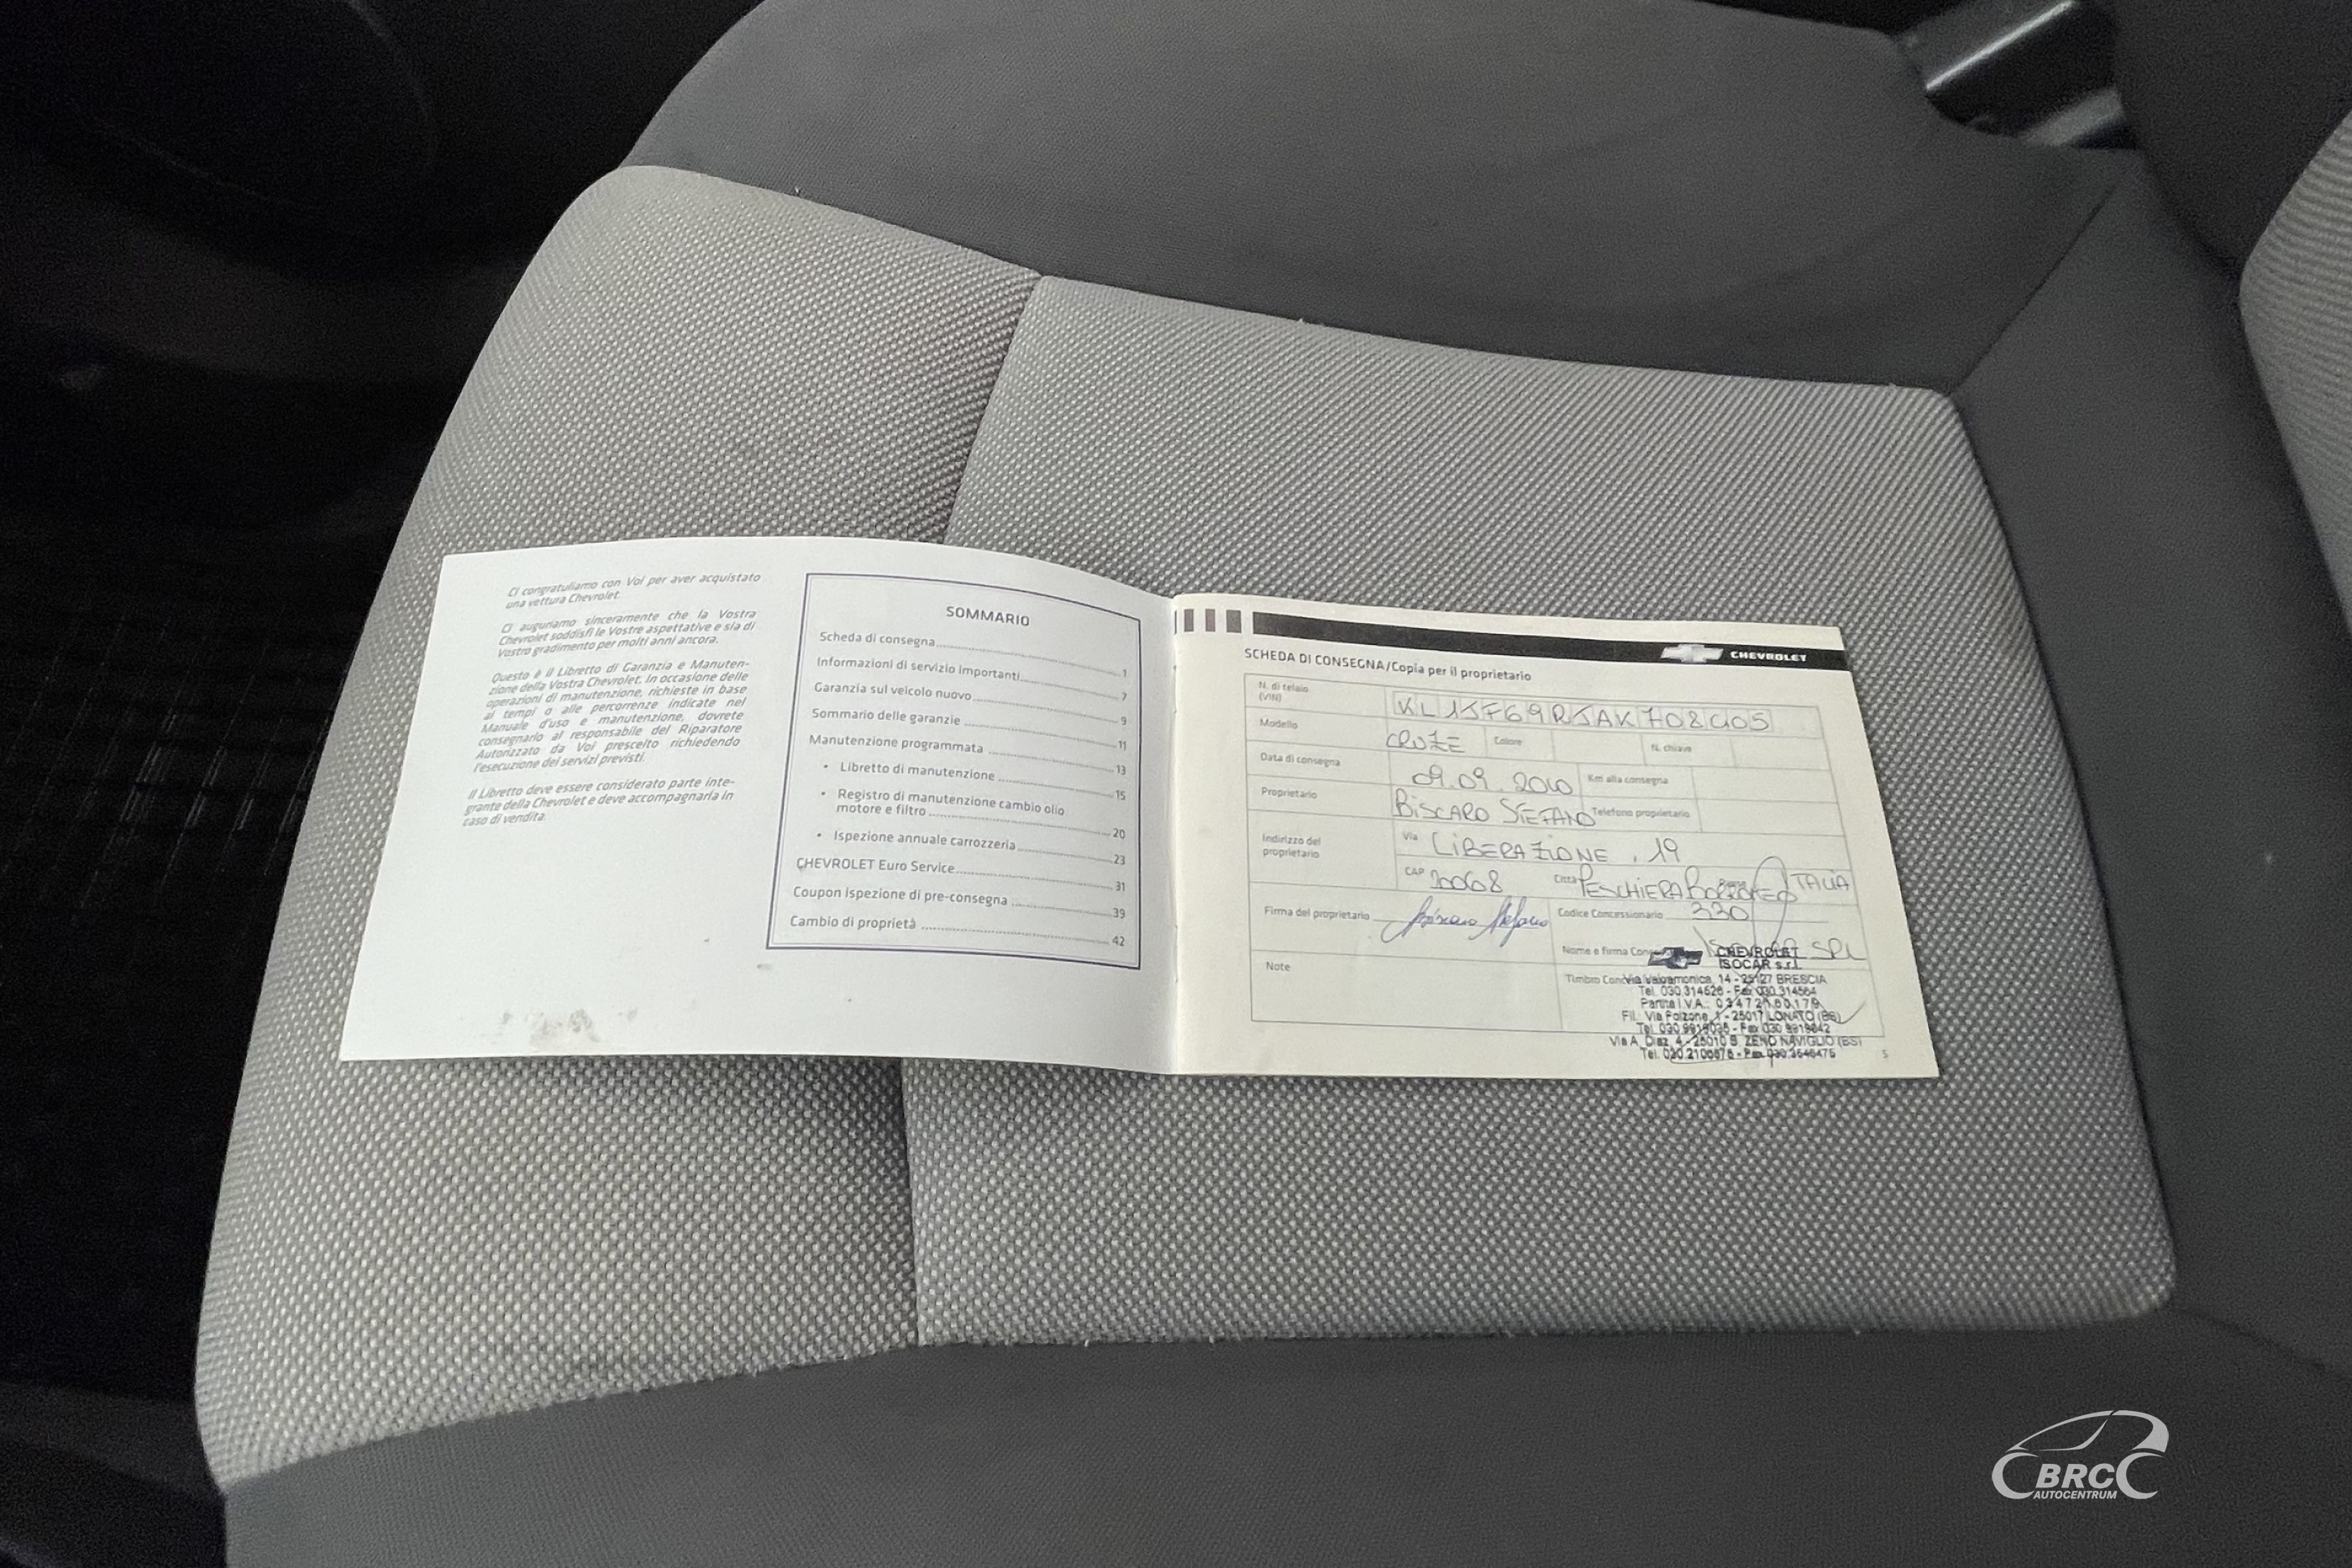 Ci congratuliamo con Voi per aver acquistato
una vettura Chevrolet.
Ci auguriamo sinceramente che la Vostra
Chevrolet soddisfi le Vostre aspettative e sia di
Vostro gradimento per molti anni ancora.
Questo è il Libretto di Garanzia e Manuten-
zione della Vostra Chevrolet. In occasione delle
operazioni di manutenzione, richieste in base
ai tempi o alle percorrenze indicate nel
Manuale d'uso e manutenzione, dovrete
consegnarlo al responsabile del Riparatore
Autorizzato da Voi prescelto richiedendo
l'esecuzione dei servizi previsti.
Il Libretto deve essere considerato parte inte-
grante della Chevrolet e deve accompagnarla in
caso di vendita.
SOMMARIO
Scheda di consegna 1
Informazioni di servizio importanti 7
Garanzia sul veicolo nuovo 9
Sommario delle garanzie 11
Manutenzione programmata 13
• Libretto di manutenzione 15
• Registro di manutenzione cambio olio
motore e filtro 20
• Ispezione annuale carrozzeria 23
CHEVROLET Euro Service 31
Coupon ispezione di pre-consegna 39
Cambio di proprietà 42
CHEVROLET
SCHEDA DI CONSEGNA/Copia per il proprietario
N. di telaio
(VIN)
Modello CRUZE Colore N. chiave
Data di consegna 09.09.2010 Km alla consegna
Proprietario BISCARO STEFANO Telefono proprietario
Indirizzo del
proprietario
Via LIBERAZIONE, 19
CAP 20068 Città PESCHIERA BORROMEO ITALIA
Firma del proprietario Biscaro Stefano Codice Concessionario 330
Nome e firma SRL
Note
Timbro
CHEVROLET
ISOCAR s.r.l.
Via Valcamonica, 14 - 25127 BRESCIA
Tel. 030.314626 - Fax 030.314564
Partita I.V.A.:
Fil.: Via Folzone, 1 - 25017 LONATO (BS)
Tel. 030 9919035 - Fax 030 9919042
Via A. Diaz, 4 - 25010 S. ZENO NAVIGLIO (BS)
5
BRC
AUTOCENTRUM